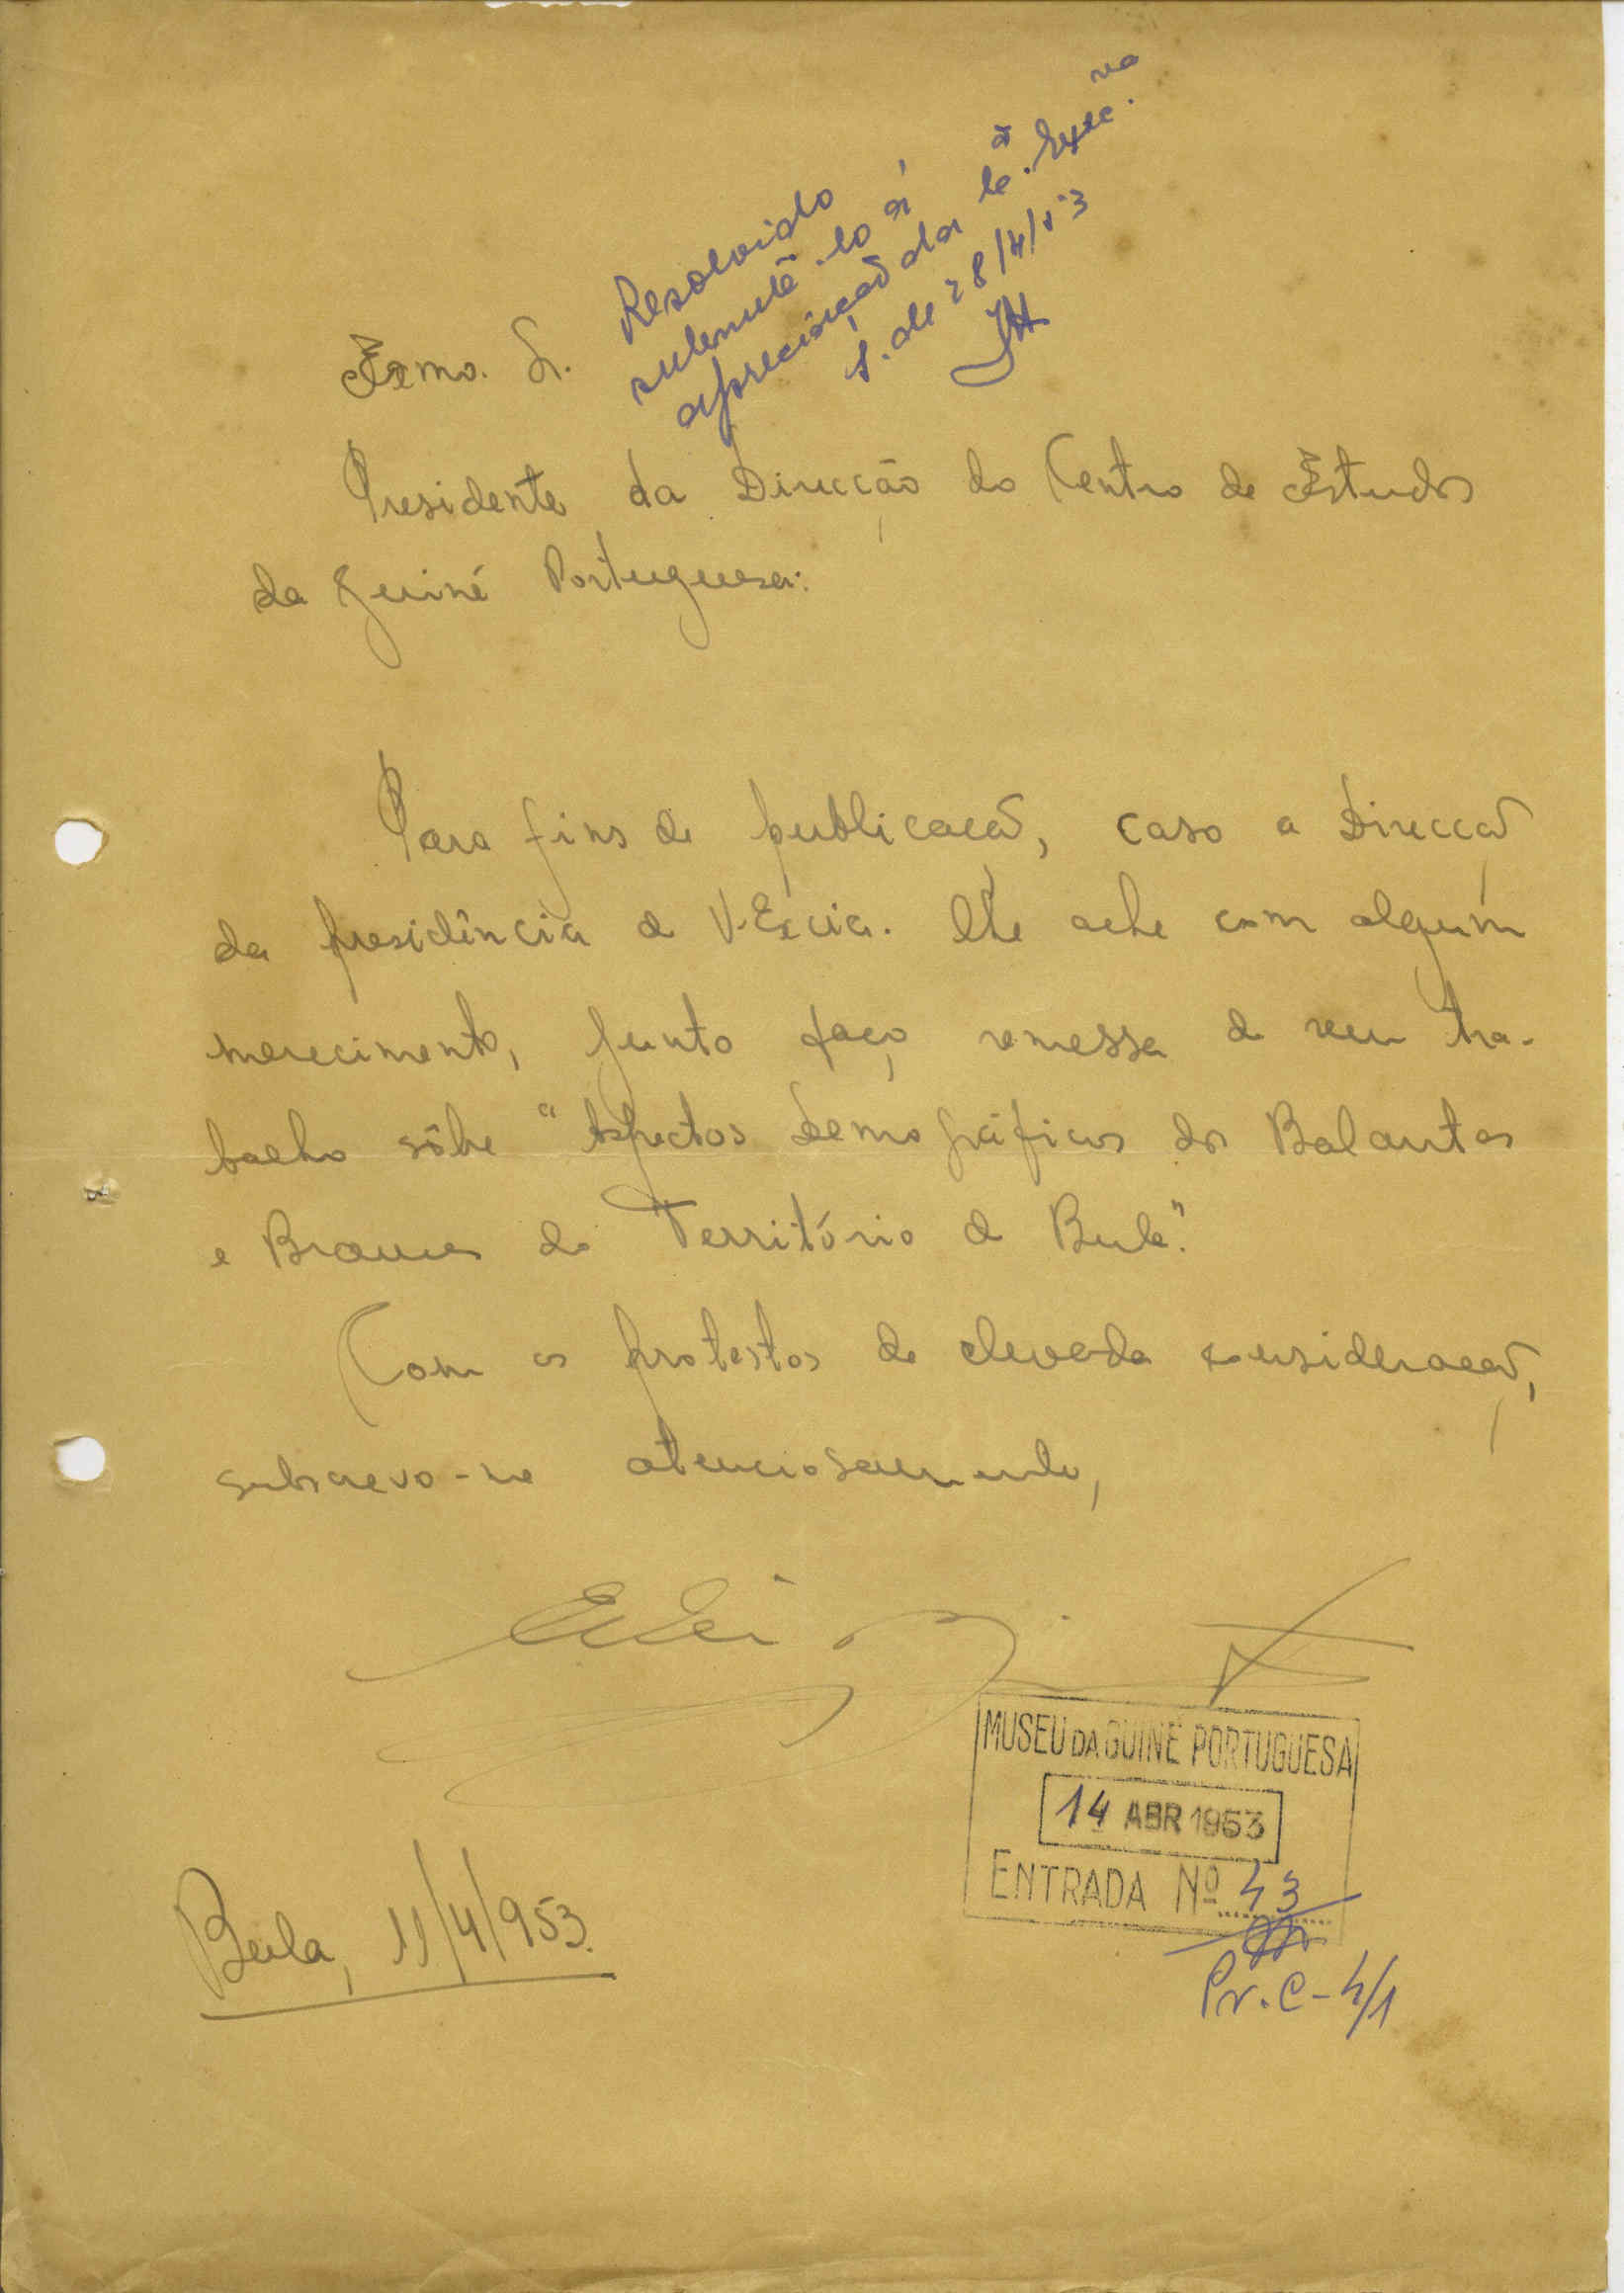 Resolvido
submetê-lo á
apreciação da Cª. Exec.va
S. de 28/4/53
Exmo. Sr.
Presidente da Direcção do Centro de Estudos
da Guiné Portuguesa:
Para fins de publicação, caso a Direcção
da presidência de V. Excia. lhe ache com algum
merecimento, junto faço remessa de meu tra-
balho sôbre "Aspectos Demográficos dos Balantas
e Brames do Território de Bula".
Com os protestos de elevada consideração,
subscrevo-me atenciosamente,
MUSEU DA GUINÉ PORTUGUESA
14 ABR 1953
ENTRADA Nº 43
Bula, 11/4/953.
Pr. C-4/1